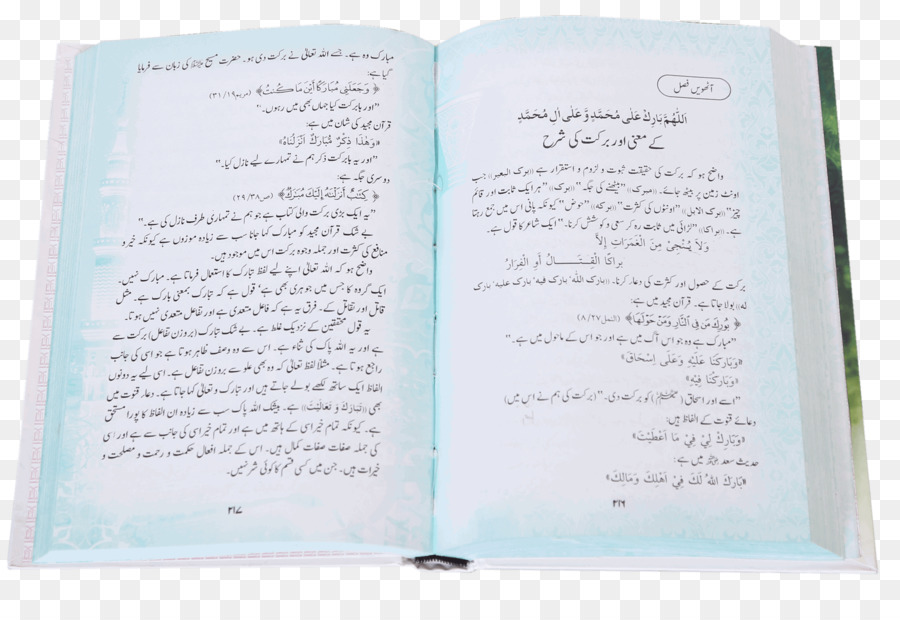 آٹھویں فصل
اَللّٰهُمَّ بَارِكْ عَلٰى مُحَمَّدٍ وَّ عَلٰى اٰلِ مُحَمَّدٍ
کے معنی اور برکت کی شرح
واضح ہو کہ برکت کی حقیقت ثبوت و لزوم و استقرار ہے «برك البعير» جب
اونٹ زمین پر بیٹھ جائے۔ «مبرك» ”بیٹھنے کی جگہ“ «برك» ”ہر ایک ثابت اور قائم
چیز“ «برك الابل» ”اونٹوں کی کثرت“ «بركه» ”حوض“ کیونکہ پانی اس میں جمع رہتا
ہے۔ «براكا» ”لڑائی میں ثابت رہ کر سعی و کوشش کرنا۔“ ایک شاعر کا قول ہے۔
وَلَا يُنْجِيْ مِنَ الْغَمَرَاتِ اِلَّا
بَرَاكَا الْقِتَـــالِ أَوِ الْفِرَارُ
برکت کے حصول اور کثرت کی دعا کرنا۔ «بارك الله' بارك فيه' بارك عليه' بارك
له» بولا جاتا ہے۔ قرآن مجید میں ہے:
﴿بُوْرِكَ مَنْ فِي النَّارِ وَمَنْ حَوْلَهَا﴾ (النمل ٢٧/ ٨)
”مبارک ہے وہ جو اس آگ میں ہے اور جو اس کے ماحول میں ہے۔“
«وَبَارَكْنَا عَلَيْهِ وَعَلٰى اِسْحَاقَ»
«وَبَارَكْنَا فِيْهِ»
”اسے اور اسحاق کو برکت دی۔“ (برکت کی ہم نے اس میں)
دعائے قنوت کے الفاظ ہیں:
«وَبَارِكْ لِيْ فِيْ مَا اَعْطَيْتَ»
حدیث سعد میں ہے:
«بَارَكَ اللهُ لَكَ فِيْ اَهْلِكَ وَمَالِكَ»
٢١٦
مبارک وہ ہے۔ جسے اللہ تعالیٰ نے برکت دی ہو۔ حضرت مسیح کی زبان سے فرمایا
گیا ہے:
﴿وَجَعَلَنِيْ مُبَارَكًا أَيْنَ مَا كُنْتُ﴾ (مریم ١٩/ ٣١)
”اور بابرکت کیا جہاں بھی میں رہوں۔“
قرآن مجید کی شان میں ہے:
«وَهٰذَا ذِكْرٌ مُّبَارَكٌ اَنْزَلْنَاهُ»
”اور یہ بابرکت ذکر ہم نے تمہارے لیے نازل کیا۔“
دوسری جگہ ہے:
﴿كِتٰبٌ أَنْزَلْنٰهُ إِلَيْكَ مُبٰرَكٌ﴾ (ص ٣٨/ ٢٩)
”یہ ایک بڑی برکت والی کتاب ہے جو ہم نے تمہاری طرف نازل کی ہے۔“
بے شک قرآن مجید کو مبارک کہا جانا سب سے زیادہ موزوں ہے کیونکہ خیر و
منافع کی کثرت اور جملہ وجوہ برکت اس میں موجود ہیں۔
واضح ہو کہ اللہ تعالیٰ اپنے لیے لفظ تبارک کا استعمال فرماتا ہے۔ مبارک نہیں۔
ایک گروہ کا جس میں جوہری بھی ہے' قول ہے کہ تبارک بمعنی بارک ہے۔ مثل
قاتل اور تقاتل کے۔ فرق یہ ہے کہ فاعل متعدی ہے اور تفاعل متعدی نہیں ہوتا۔
یہ قول محققین کے نزدیک غلط ہے۔ بے شک تبارک (بروزن تفاعل) برکت سے
ہے اور یہ اللہ پاک کی ثناء ہے۔ اس سے وہ وصف ظاہر ہوتا ہے جو اسی کی جانب
راجع ہوتا ہے۔ مثلاً لفظ تعالیٰ کہ وہ بھی علو سے بروزن تفاعل ہے۔ اسی لیے یہ دونوں
الفاظ ایک ساتھ لکھے بولے جاتے ہیں اور تبارک و تعالیٰ کہا جاتا ہے۔ دعاء قنوت میں
بھی «تَبَارَكْتَ وَ تَعَالَيْتَ» ہے۔ بیشک اللہ پاک سب سے زیادہ ان الفاظ کا پورا مستحق
ہے۔ کیونکہ تمام خیر اسی کے ہاتھ میں ہے اور تمام خیر اسی کی جانب سے ہے اور اسی
کی جملہ صفات صفات کمال ہیں۔ اس کے جملہ افعال حکمت و رحمت و مصلحت و
خیرات ہیں۔ جن میں کسی قسم کا کوئی شر نہیں۔
٢١٧